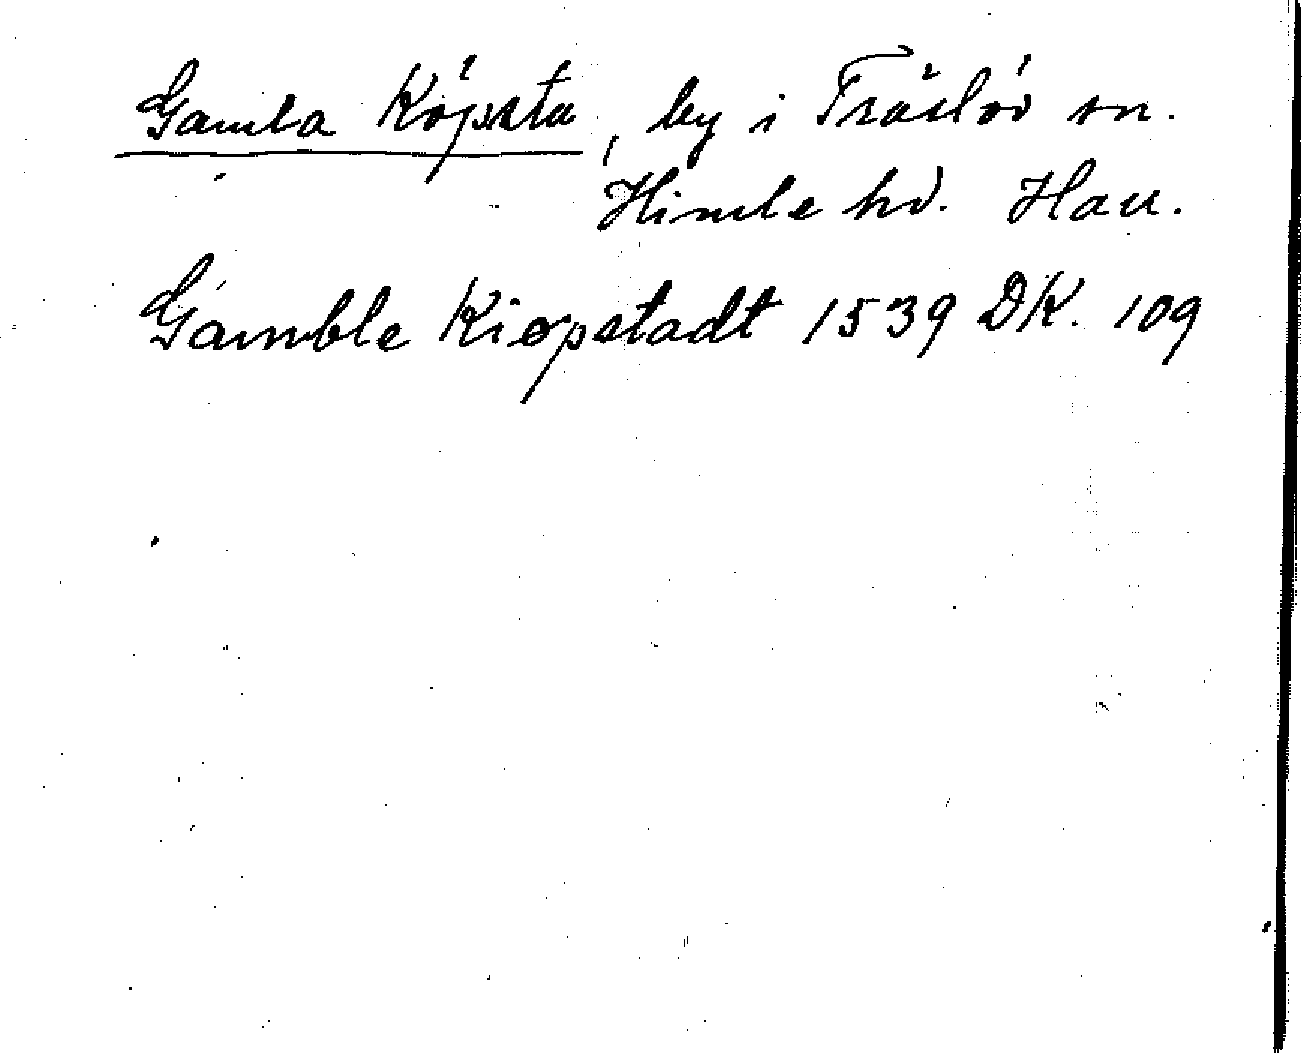 Gamla Köpsta, by i Träslöv sn.
Himle hd. Hall.
Gamble Kiøpstadt 1539 DK. 109